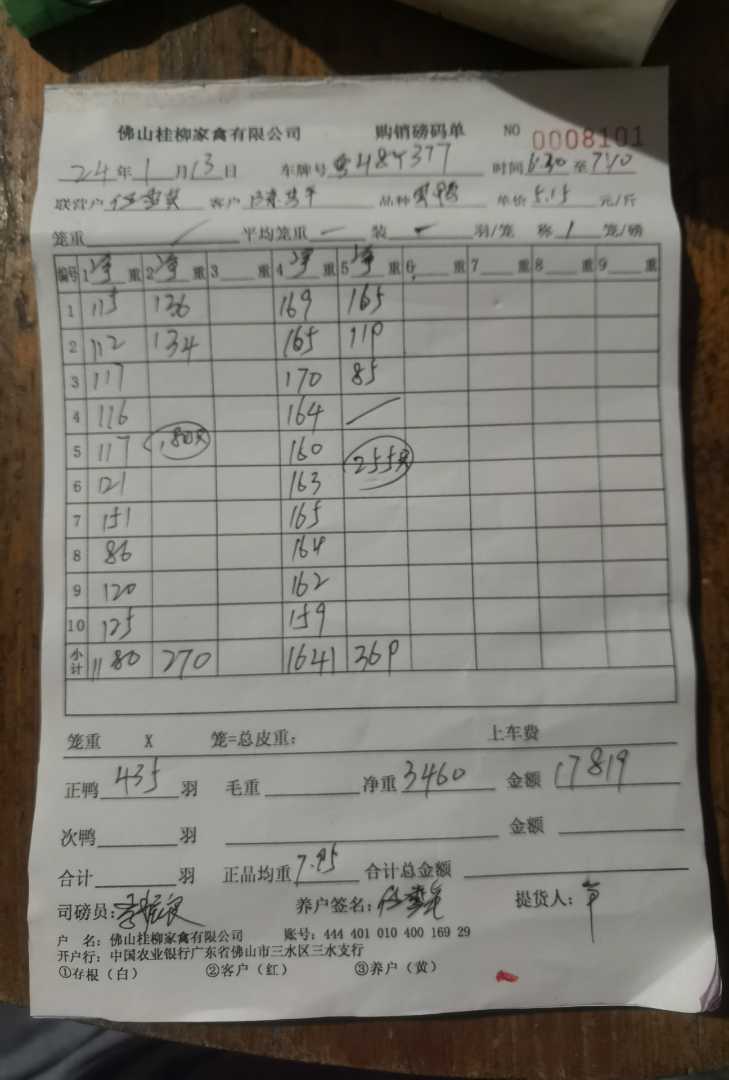 佛山桂柳家禽有限公司 购销磅码单 NO 0008101
24年1月13日 车牌号 48Y377 时间6:30至7:40
联营户 客户 品种 单价5.15元/斤
笼重 / 平均笼重 一 装 一 羽/笼 称 1 笼/磅
编号 1净重 2净重 3 重 4净重 5净重 6 重 7 重 8 重 9 重
1 115 136 169 165
2 112 134 165 119
3 117 170 85
4 116 164 /
5 117 180只 160 255只
6 121 163
7 151 165
8 86 164
9 120 162
10 125 159
小计 1180 270 1641 369
笼重 X 笼=总皮重: 上车费
正鸭 435 羽 毛重 净重 3460 金额 17819
次鸭 羽 金额
合计 羽 正品均重 7.95 合计总金额
司磅员: 养户签名: 提货人:
户 名: 佛山桂柳家禽有限公司 账号: 444 401 010 400 169 29
开户行: 中国农业银行广东省佛山市三水区三水支行
①存根（白） ②客户（红） ③养户（黄）